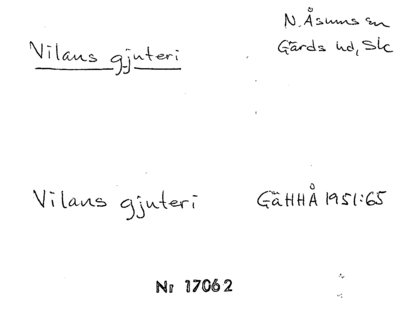 N. Åsums sn
Vilans gjuteri
Gärds hd, Sk
Vilans gjuteri GäHHÅ 1951:65
Nr 17062